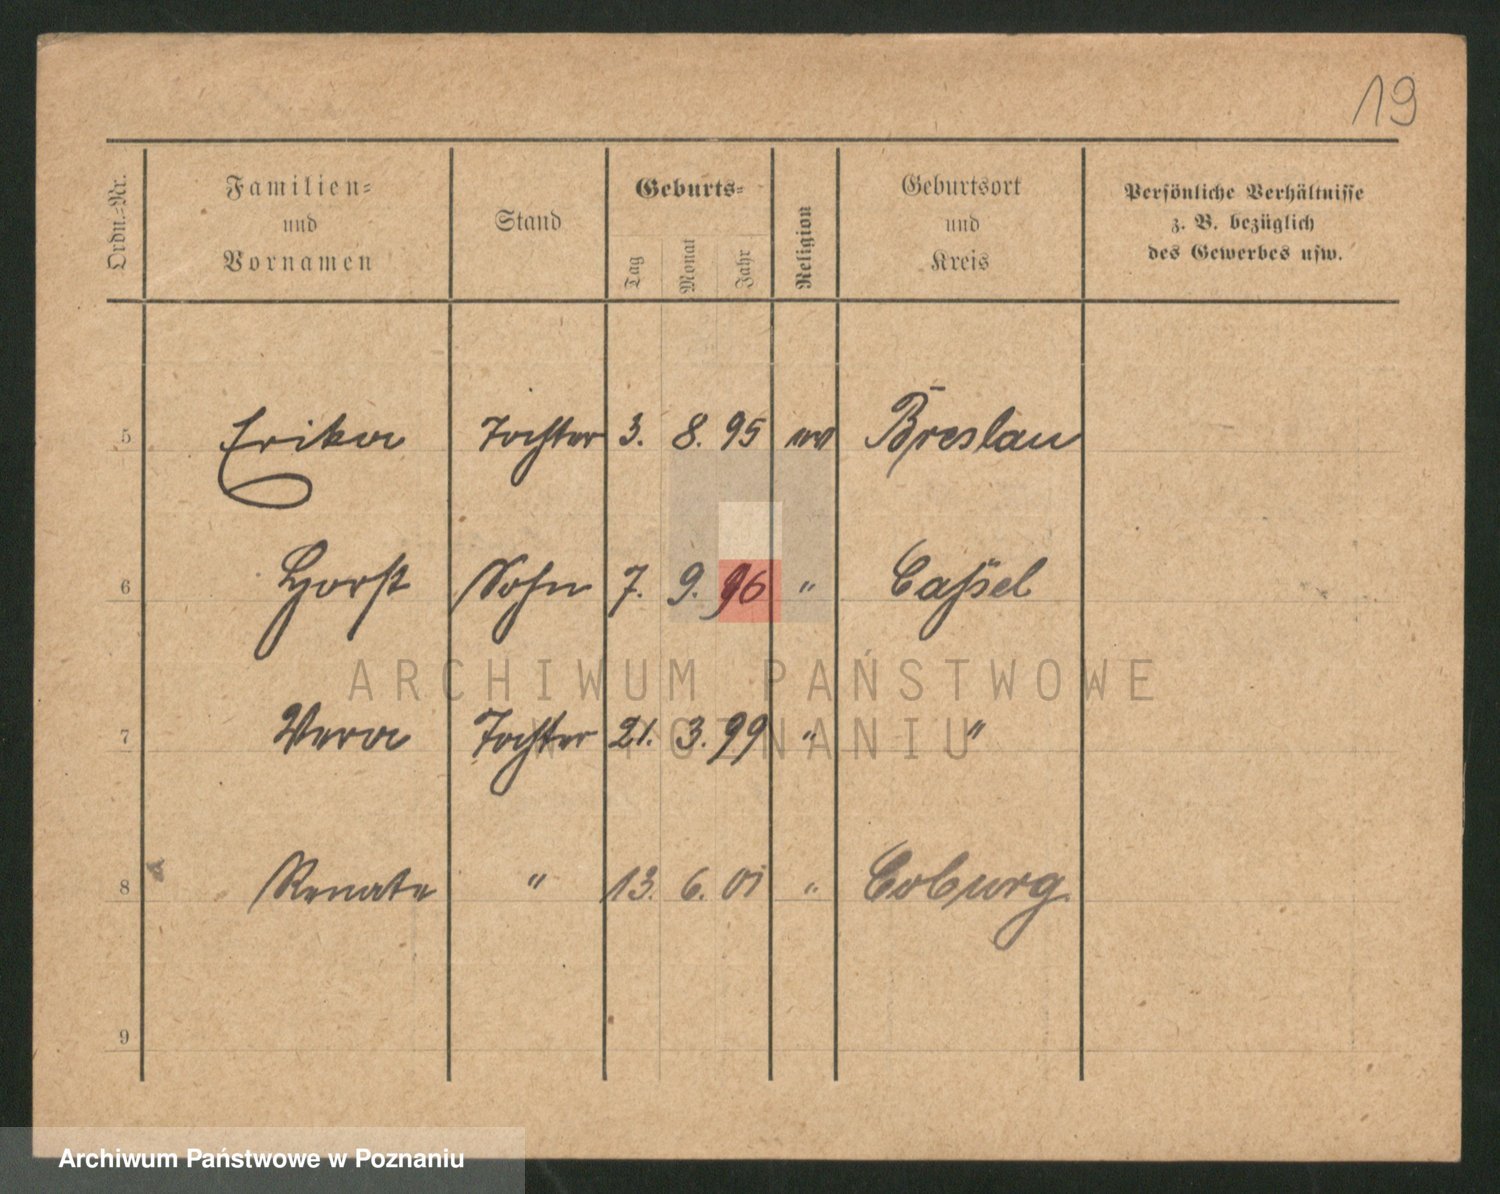 19
Ordn.-Nr.
Familien-
und
Vornamen
Stand
Geburts-
Tag
Monat
Jahr
Religion
Geburtsort
und
Kreis
Persönliche Verhältnisse
z. B. bezüglich
des Gewerbes usw.
5 Erika Tochter 3. 8. 95 Breslau
6 Horst Sohn 7. 9. 96 " Cassel
7 Vera Tochter 21. 3. 99 " "
8 Renate " 13. 6. 01 " Coburg
9
ARCHIWUM PAŃSTWOWE
W POZNANIU
Archiwum Państwowe w Poznaniu